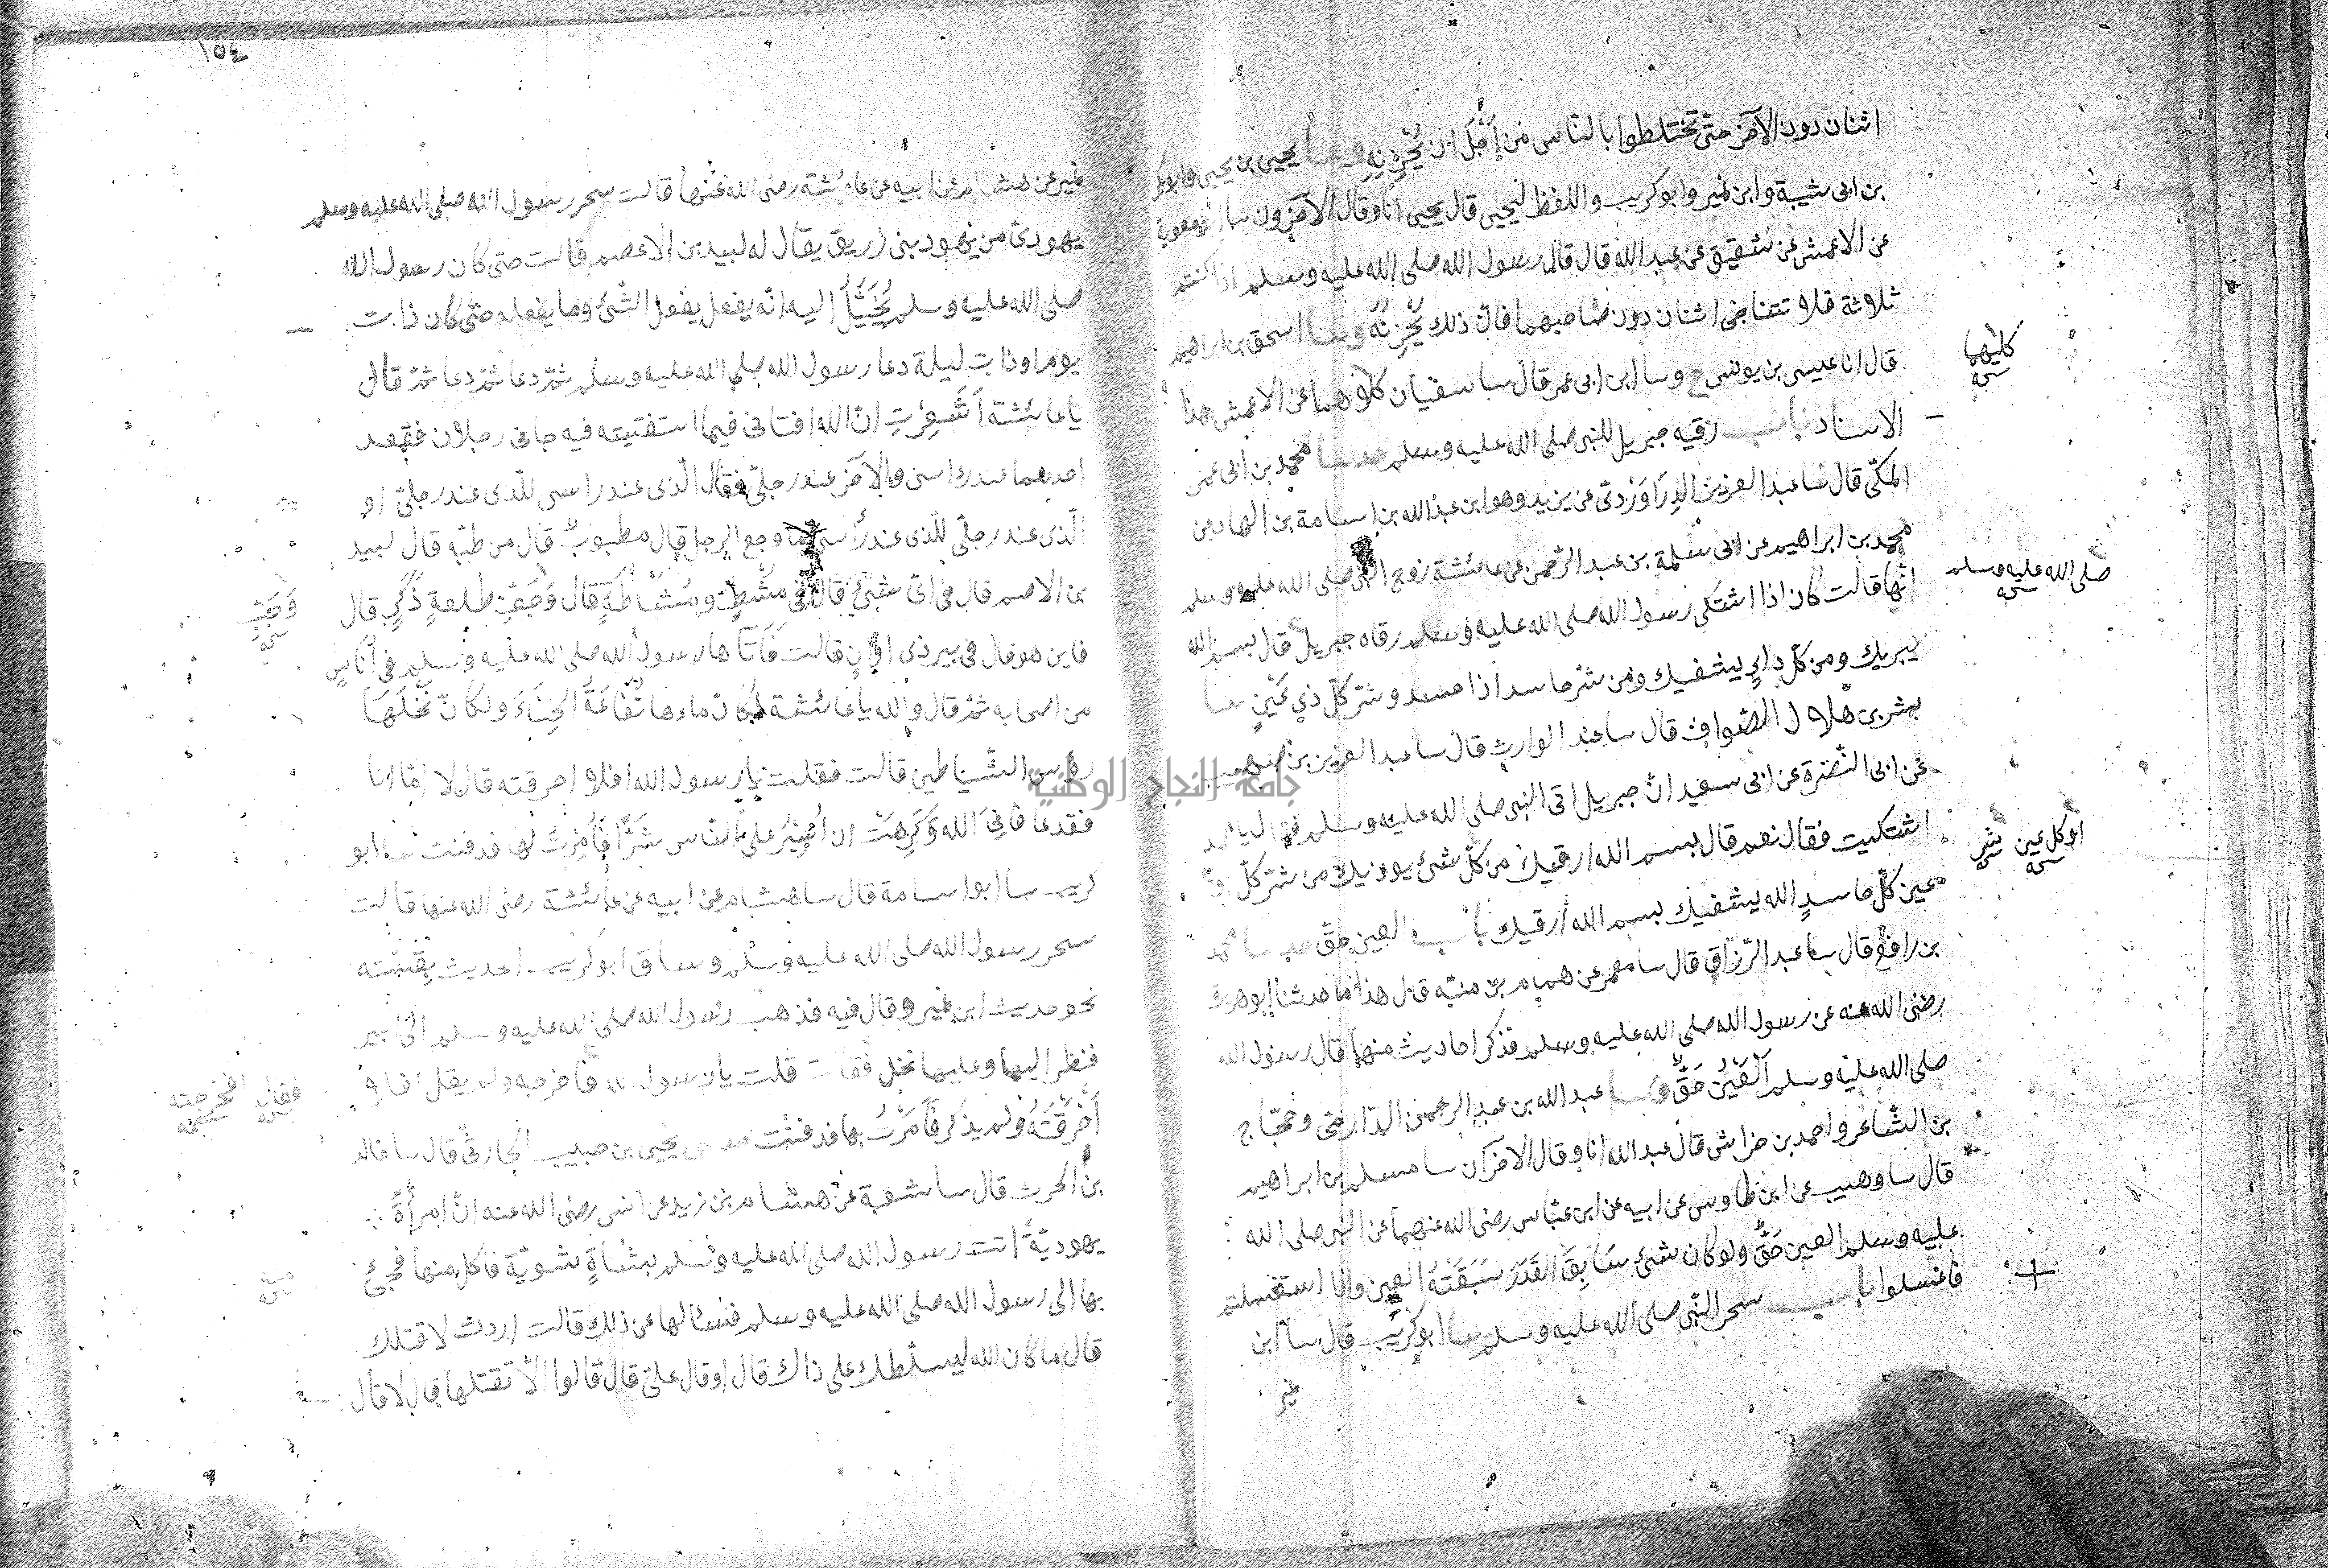 اثنان دون الآخر حتّى تختلطوا بالنّاس من اَجْلَ ان يُحْزِنِهِ وسا يحيى بن يحيى وابوبكر
بن ابى شيبة وابن نمير وابو كريب واللفظ ليحيى قال يحيى انا وقال الآخرون سا ابو معوية
عن الاعمش عن شقيق عن عبد الله قال قال رسول الله صلى الله عليه وسلم اذا كنتم
ثلاثة فلا تتناجى اثنان دون صاحبهما فانّ ذلك يُحْزِنُهُ وسا اسحق بن ابراهيم
قال انا عيسى بن يونس ح وسا ابن ابى عمر قال سا سفيان كلاهما عن الاعمش هذا
كليهما
الاسناد باب رقيه جبريل للنبى صلى الله عليه وسلم حدسا محمد بن ابى عمر
المكّى قال سا عبد العزيز الدِرَاوَرْدىّ عن يزيد وهو ابن عبد الله بن اسامة بن الهاد عن
محمد بن ابراهيم عن ابى سلمة بن عبد الرّحمن عن عائشة زوج النبى صلى الله عليه وسلم
انّها قالت كان اذا اشتكى رسول الله صلى الله عليه وسلم رقاه جبريل قال بسم الله
صلى الله عليه وسلم
يبريك ومن كلّ داءٍ يشفيك ومن شرّ حاسد اذا حسد وشرّ كلّ ذي عَيْنٍ سا
بشر بن هلال الصّواف قال سا عبد الوارث قال سا عبد العزيز بن صهيب
عن ابى النّضرة عن ابى سعيد انّ جبريل اتى النبى صلى الله عليه وسلم فقال يا محمد
اشتكيت فقال نعم قال بسم الله ارقيك من كلّ شئ يوذيك من شرّ كلّ
او كل عين
عين كلّ حاسدٍ الله يشفيك بسم الله ارقيك باب العين حقّ حدسا محمد
بن رافع قال سا عبد الرّزاق قال سا معمر عن همام بن منبّه قال هذا ما حدثنا ابو هريرة
رضى الله عنه عن رسول الله صلى الله عليه وسلم فذكر احاديث منها قال رسول الله
صلى الله عليه وسلم اَلْعَيْنُ حَقٌّ وسا عبد الله بن عبد الرحمن الدّارمىّ وحجّاج
بن الشّاعر واحمد بن خراش قال عبد الله انا وقال الآخران سا مسلم بن ابراهيم
قال سا وهيب عن ابن طاوس عن ابيه عن ابن عبّاس رضى الله عنهما عن النبى صلى الله
عليه وسلم العين حَقٌّ ولو كان شئ سَابِقَ القَدَرَ سَبَقَتْهُ العين واذا استغسلتم
فاغسلوا باب سحر النّبى صلى الله عليه وسلم سا ابو كُرَيْب قال سا ابن
نمير
١٥٤
نمير عن هشام عن ابيه عن عائشة رضى الله عنها قالت سحر رسول الله صلى الله عليه وسلم
يهودىّ من يهود بنى زريق يقال له لبيد بن الاعصم قالت حتى كان رسول الله
صلى الله عليه وسلم يُخَيَّلُ اليه انّه يفعل يفعل الشّئ وما يفعله حتّى كان ذات
يوم او ذات ليلة دعا رسول الله صلى الله عليه وسلم ثمّ دعا ثمّ دعا ثمّ قال
يا عائشة اَشَعِرْتِ انّ الله افتانى فيما استفتيته فيه جانى رجلان فقعد
احدهما عند راسى والآخر عند رجلىّ فقال الّذى عند راسى للّذى عند رجلىّ او
الّذى عند رجلىّ للّذى عند رأسى ما وجع الرجل قال مطبوبٌ قال من طبّه قال لبيد
بن الاعصم قال فى اىّ شئٍ قال فى مُشْطٍ ومُشَاطَةٍ قال وَجَفِّ طلعةٍ ذَكَرٍ قال
وَجُبِّ
فاين هو قال فى بير ذى اروان قالت فَاَتَاها رسول الله صلى الله عليه وسلم فى اُنَاسٍ
من اصحابه ثمّ قال والله يا عائشة لكانّ ماءها نُقَاعَةُ الحِنَاءِ ولكانّ نَخْلَهَا
رؤس الشّياطين قالت فقلت يا رسول الله افلا احرقته قال لا امّا انا
فقد عافانىَ الله وَكَرِهْتُ ان اُثِيْرَ على النّاس شَرًّا فَاَمَرْتُ بها فدفنت سا ابو
كريب سا ابو اسامة قال سا هشام عن ابيه عن عائشة رضى الله عنها قالت
سحر رسول الله صلى الله عليه وسلم وساق ابو كريب الحديث بِقِصّته
نحو حديث ابن نمير وقال فيه فذهب رسول الله صلى الله عليه وسلم الى البير
فنظر اليها وعليها نخل فقالت قلت يا رسول الله فاخرجه ولم يقل افلا
فقلت افخرجته
اَحْرَقْتَهُ ولم يذكر فَاَمَرْتُ بها فدفنت حدسى يحيى بن حبيب الحارثىّ قال سا خالد
بن الحرث قال سا شعبة عن هشام بن زيد عن انس رضى الله عنه انّ امرأةً
يهوديّةً اتت رسول الله صلى الله عليه وسلم بشاةٍ مشويّة فاكل منها فجئ
منه
بها الى رسول الله صلى الله عليه وسلم فسئالها عن ذلك قالت اردت لاقتلك
قال ما كان الله ليسلّطك على ذاك قال او قال علىّ قال قالوا الّا تقتلها قال لا قال
جامعة النجاح الوطنية